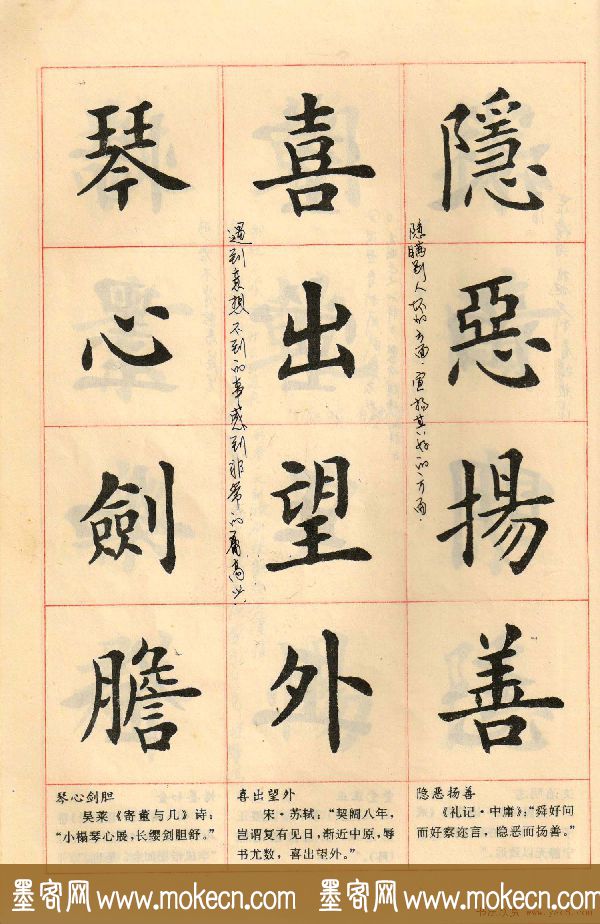 隱惡揚善
隐瞒别人坏的方面，宣扬其好的方面.
喜出望外
遇到意想不到的事感到非常的高兴.
琴心劍膽
隐恶扬善
《礼记·中庸》：“舜好问
而好察迩言，隐恶而扬善。”
喜出望外
宋·苏轼：“契阔八年，
岂谓复有见日，渐近中原，辱
书尤数，喜出望外。”
琴心剑胆
吴莱《寄董与几》诗：
“小榻琴心展，长缨剑胆舒。”
墨客网 www.mokecn.com 墨客网 www.mokecn.com